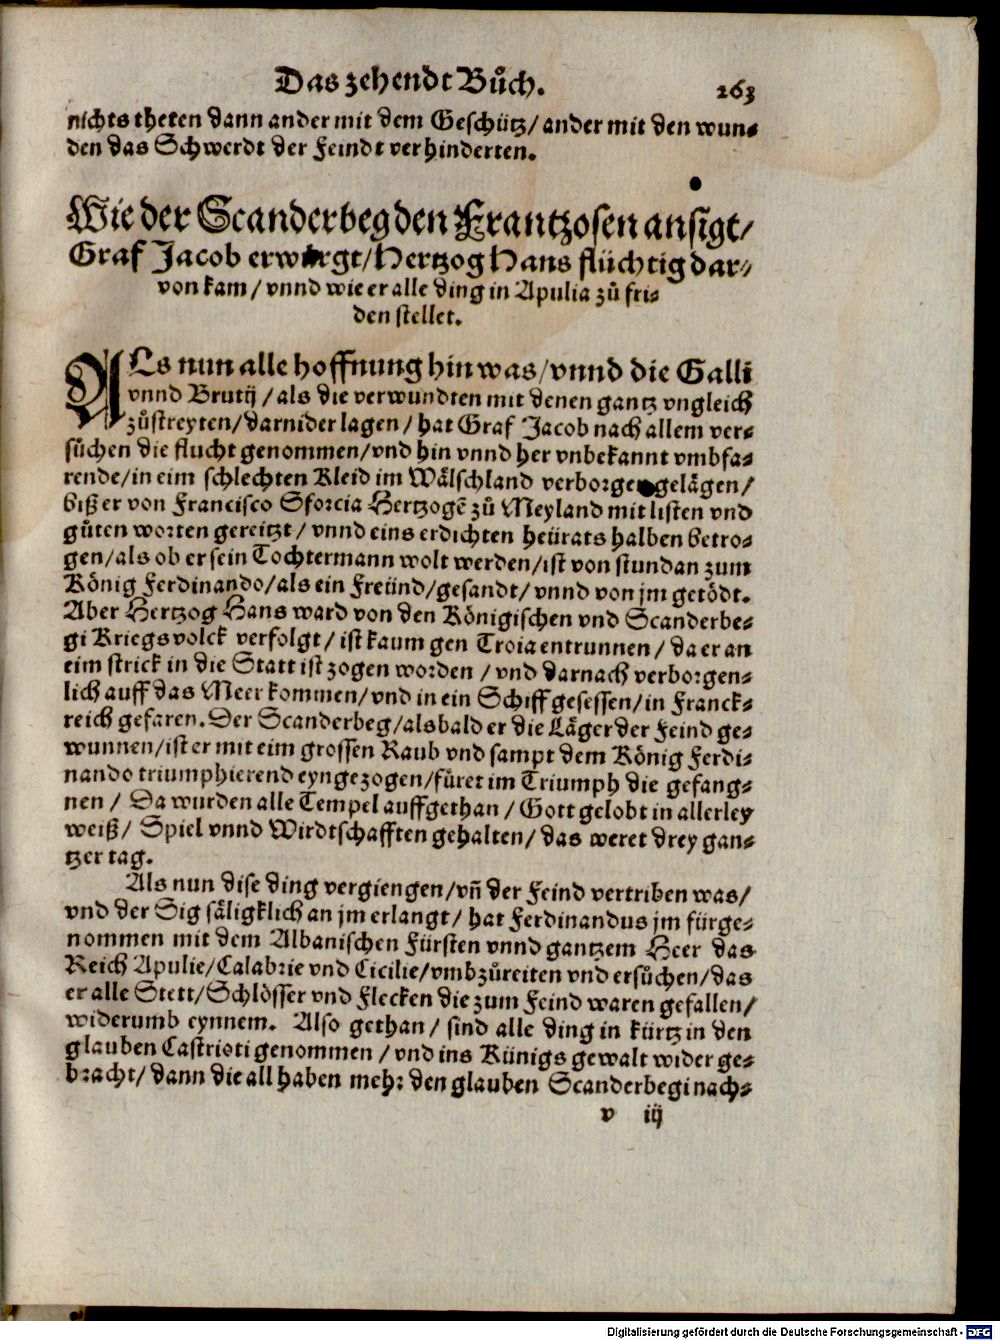 Das zehendt Bůch. 263
nichts theten dann ander mit dem Geschütz/ ander mit den wun⸗
den das Schwerdt der Feindt verhinderten.
Wie der Scanderbeg den Frantzosen ansigt/
Graf Jacob erwürgt/ Hertzog Hans flüchtig dar⸗
von kam/ vnnd wie er alle ding in Apulia zů fri⸗
den stellet.
ALs nun alle hoffnung hin was/ vnnd die Galli
vnnd Brutij/ als die verwundten mit denen gantz vngleich
zůstreyten/ darnider lagen/ hat Graf Jacob nach allem ver⸗
sůchen die flucht genommen/ vnd hin vnnd her vnbekannt vmbfa⸗
rende/ in eim schlechten Kleid im Wälschland verborgen gelägen/
biß er von Francisco Sforcia Hertzogẽ zů Meyland mit listen vnd
gůten worten gereitzt/ vnnd eins erdichten heürats halben betro⸗
gen/ als ob er sein Tochtermann wolt werden/ ist von stundan zum
König Ferdinando/ als ein Freünd/ gesandt/ vnnd von jm getödt.
Aber Hertzog Hans ward von den Königischen vnd Scanderbe⸗
gi Kriegsvolck verfolgt/ ist kaum gen Troia entrunnen/ da er an
eim strick in die Statt ist zogen worden/ vnd darnach verborgen⸗
lich auff das Meer kommen/ vnd in ein Schiff gesessen/ in Franck⸗
reich gefaren. Der Scanderbeg/ alsbald er die Läger der Feind ge⸗
wunnen/ ist er mit eim grossen Raub vnd sampt dem König Ferdi⸗
nando triumphierend eyngezogen/ füret im Triumph die gefang⸗
nen/ Da wurden alle Tempel auffgethan/ Gott gelobt in allerley
weiß/ Spiel vnnd Wirdtschafften gehalten/ das weret drey gan⸗
tzer tag.
Als nun dise ding vergiengen/ vñ der Feind vertriben was/
vnd der Sig säligklich an jm erlangt/ hat Ferdinandus jm fürge⸗
nommen mit dem Albanischen Fürsten vnnd gantzem Heer das
Reich Apulie/ Calabrie vnd Cicilie/ vmbzůreiten vnd ersůchen/ das
er alle Stett/ Schlösser vnd Flecken die zum Feind waren gefallen/
widerumb eynnem. Also gethan/ sind alle ding in kürtz in den
glauben Castrioti genommen/ vnd ins Künigs gewalt wider ge⸗
bracht/ dann die all haben mehr den glauben Scanderbegi nach⸗
v iij
Digitalisierung gefördert durch die Deutsche Forschungsgemeinschaft - DFG